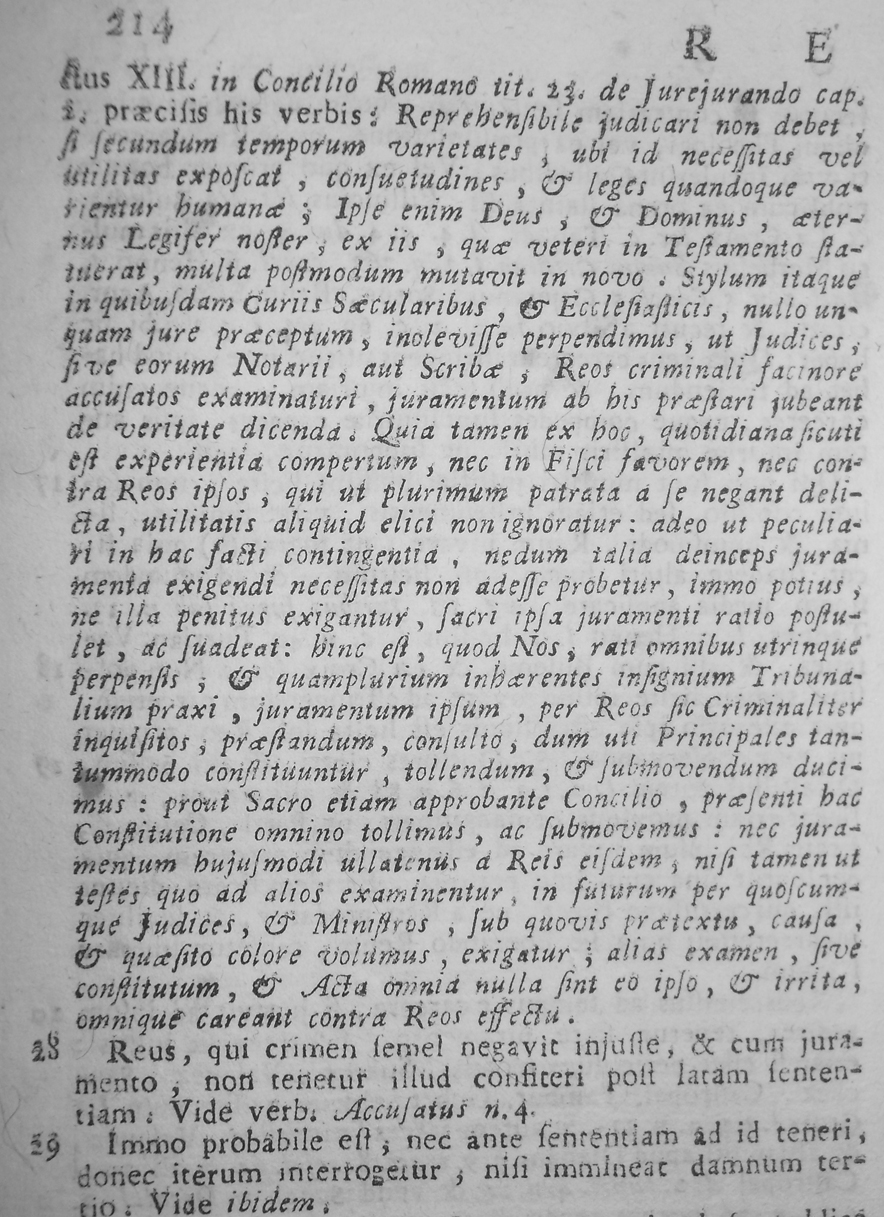 214
R E
ctus XIII. in Concilio Romano tit. 13. de Jurejurando cap.
2. præcisis his verbis: Reprehensibile judicari non debet,
si secundum temporum varietates, ubi id necessitas vel
utilitas exposcat, consuetudines, & leges quandoque va-
rientur humanæ; Ipse enim Deus, & Dominus, æter-
nus Legifer noster, ex iis, quæ veteri in Testamento sta-
tuerat, multa postmodum mutavit in novo. Stylum itaque
in quibusdam Curiis Sæcularibus, & Ecclesiasticis, nullo un-
quam jure præceptum, inolevisse perpendimus, ut Judices,
sive eorum Notarii, aut Scribæ, Reos criminali facinore
accusatos examinaturi, juramentum ab his præstari jubeant
de veritate dicenda. Quia tamen ex hoc, quotidiana sicuti
est experientia compertum, nec in Fisci favorem, nec con-
tra Reos ipsos, qui ut plurimum patrata a se negant deli-
cta, utilitatis aliquid elici non ignoratur: adeo ut peculia-
ri in hac facti contingentia, nedum talia deinceps jura-
menta exigendi necessitas non adesse probetur, immo potius,
ne illa penitus exigantur, sacri ipsa juramenti ratio postu-
let, ac suadeat: hinc est, quod Nos, rati omnibus utrinque
perpensis, & quamplurium inhærentes insignium Tribuna-
lium praxi, juramentum ipsum, per Reos sic Criminaliter
inquisitos, præstandum, consulto, dum uti Principales tan-
tummodo constituuntur, tollendum, & submovendum duci-
mus: prout Sacro etiam approbante Concilio, præsenti hac
Constitutione omnino tollimus, ac submovemus: nec jura-
mentum hujusmodi ullatenus a Reis eisdem, nisi tamen ut
testes quo ad alios examinentur, in futurum per quoscum-
que Judices, & Ministros, sub quovis prætextu, causa,
& quæsito colore volumus, exigatur; alias examen, sive
constitutum, & Acta omnia nulla sint eo ipso, & irrita,
omnique careant contra Reos effectu.
28 Reus, qui crimen semel negavit injuste, & cum jura-
mento, non tenetur illud confiteri post latam senten-
tiam. Vide verb. Accusatus n. 4.
29 Immo probabile est, nec ante sententiam ad id teneri,
donec iterum interrogetur, nisi immineat damnum ter-
tio. Vide ibidem.